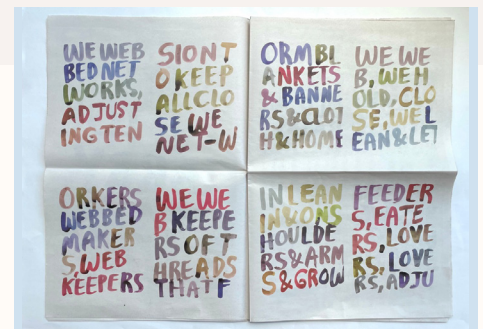 WE WEB
BED NET
WORKS,
ADJUST
ING TEN
SION T
O KEEP
ALL CLO
SE WE
NET-W
ORM BL
ANKETS
& BANNE
RS & CLOT
H & HOME
WE WE
B, WE H
OLD, CLO
SE, WE L
EAN & LET
ORKERS
WEBBED
MAKER
S, WEB
KEEPERS
WE WE
B KEEPE
RS OF T
HREADS
THAT F
IN LEAN
IN & ON S
HOULDE
RS & ARM
S & GROW
FEEDER
S, EATE
RS, LOVE
RS, LOVE
RS, ADJU